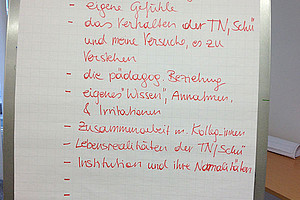 - eigene Gefühle
- das Verhalten der TN/Schü
und meine Versuche, es zu
verstehen
- die pädagog. Beziehung
- eigenes "Wissen", Annahmen,
& Irritationen
- Zusammenarbeit m. Kolleg·innen
- Lebensrealitäten der TN/Schü
- Institution und ihre Normalitäten
-
-